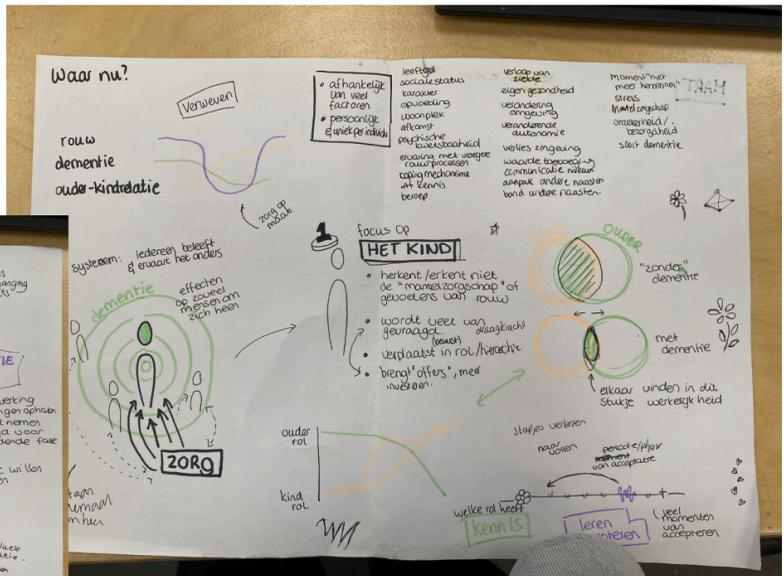 Waar nu?
Verweven
rouw
dementie
ouder-kindrelatie
zorg op
maat
• afhankelijk
van veel
factoren
• persoonlijk
& uniek per individu
leeftijd
sociale status
karakter
opvoeding
woonplek
afkomst
psychische
kwetsbaarheid
ervaring met vroegere
rouwprocessen
copingmechanisme
beroep
verloop van
ziekte
eigen gezondheid
verandering
omgeving
veranderende
autonomie
verlies zingeving
communicatie niveau
aanpak andere naasten
band andere naasten
moment "niet
meer herkennen"
stress
Mantelzorgschap
onzekerheid/
bezorgdheid
soort dementie
systeem: iedereen beleeft
& ervaart het anders
dementie
effecten
op zoveel
mensen om
zich heen
ZORG
1
focus op
HET KIND
• herkent/erkent niet
de "mantelzorgschap" of
gevoelens van rouw
• wordt veel van
gevraagd.
draagkracht
• verplaatst in rol/hierarchie
• brengt "offers", meer
investeren.
OUDER
"zonder"
dementie
met
dementie
elkaar vinden in dit
stukje werkelijkheid
ouder
rol
kind
rol
stapjes verliezen
naar
voren
periode/phase
van acceptatie
welke rol heeft
kennis
leren
veel
momenten
van
accepteren